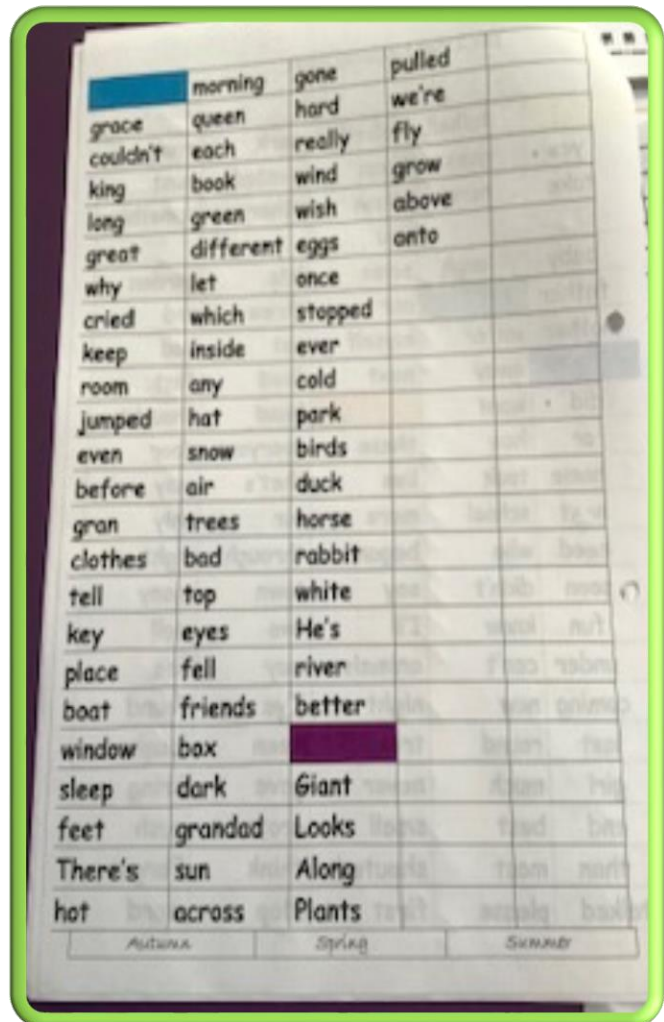 morning gone pulled
grace queen hard we're
couldn't each really fly
king book wind grow
long green wish above
great different eggs onto
why let once
cried which stopped
keep inside ever
room any cold
jumped hat park
even snow birds
before air duck
gran trees horse
clothes bad rabbit
tell top white
key eyes He's
place fell river
boat friends better
window box
sleep dark Giant
feet grandad Looks
There's sun Along
hot across Plants
Autumn Spring Summer